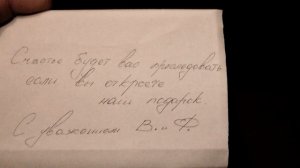 Счастье будет вас преследовать
если вы откроете
наш подарок
С уважением В. и Ф.